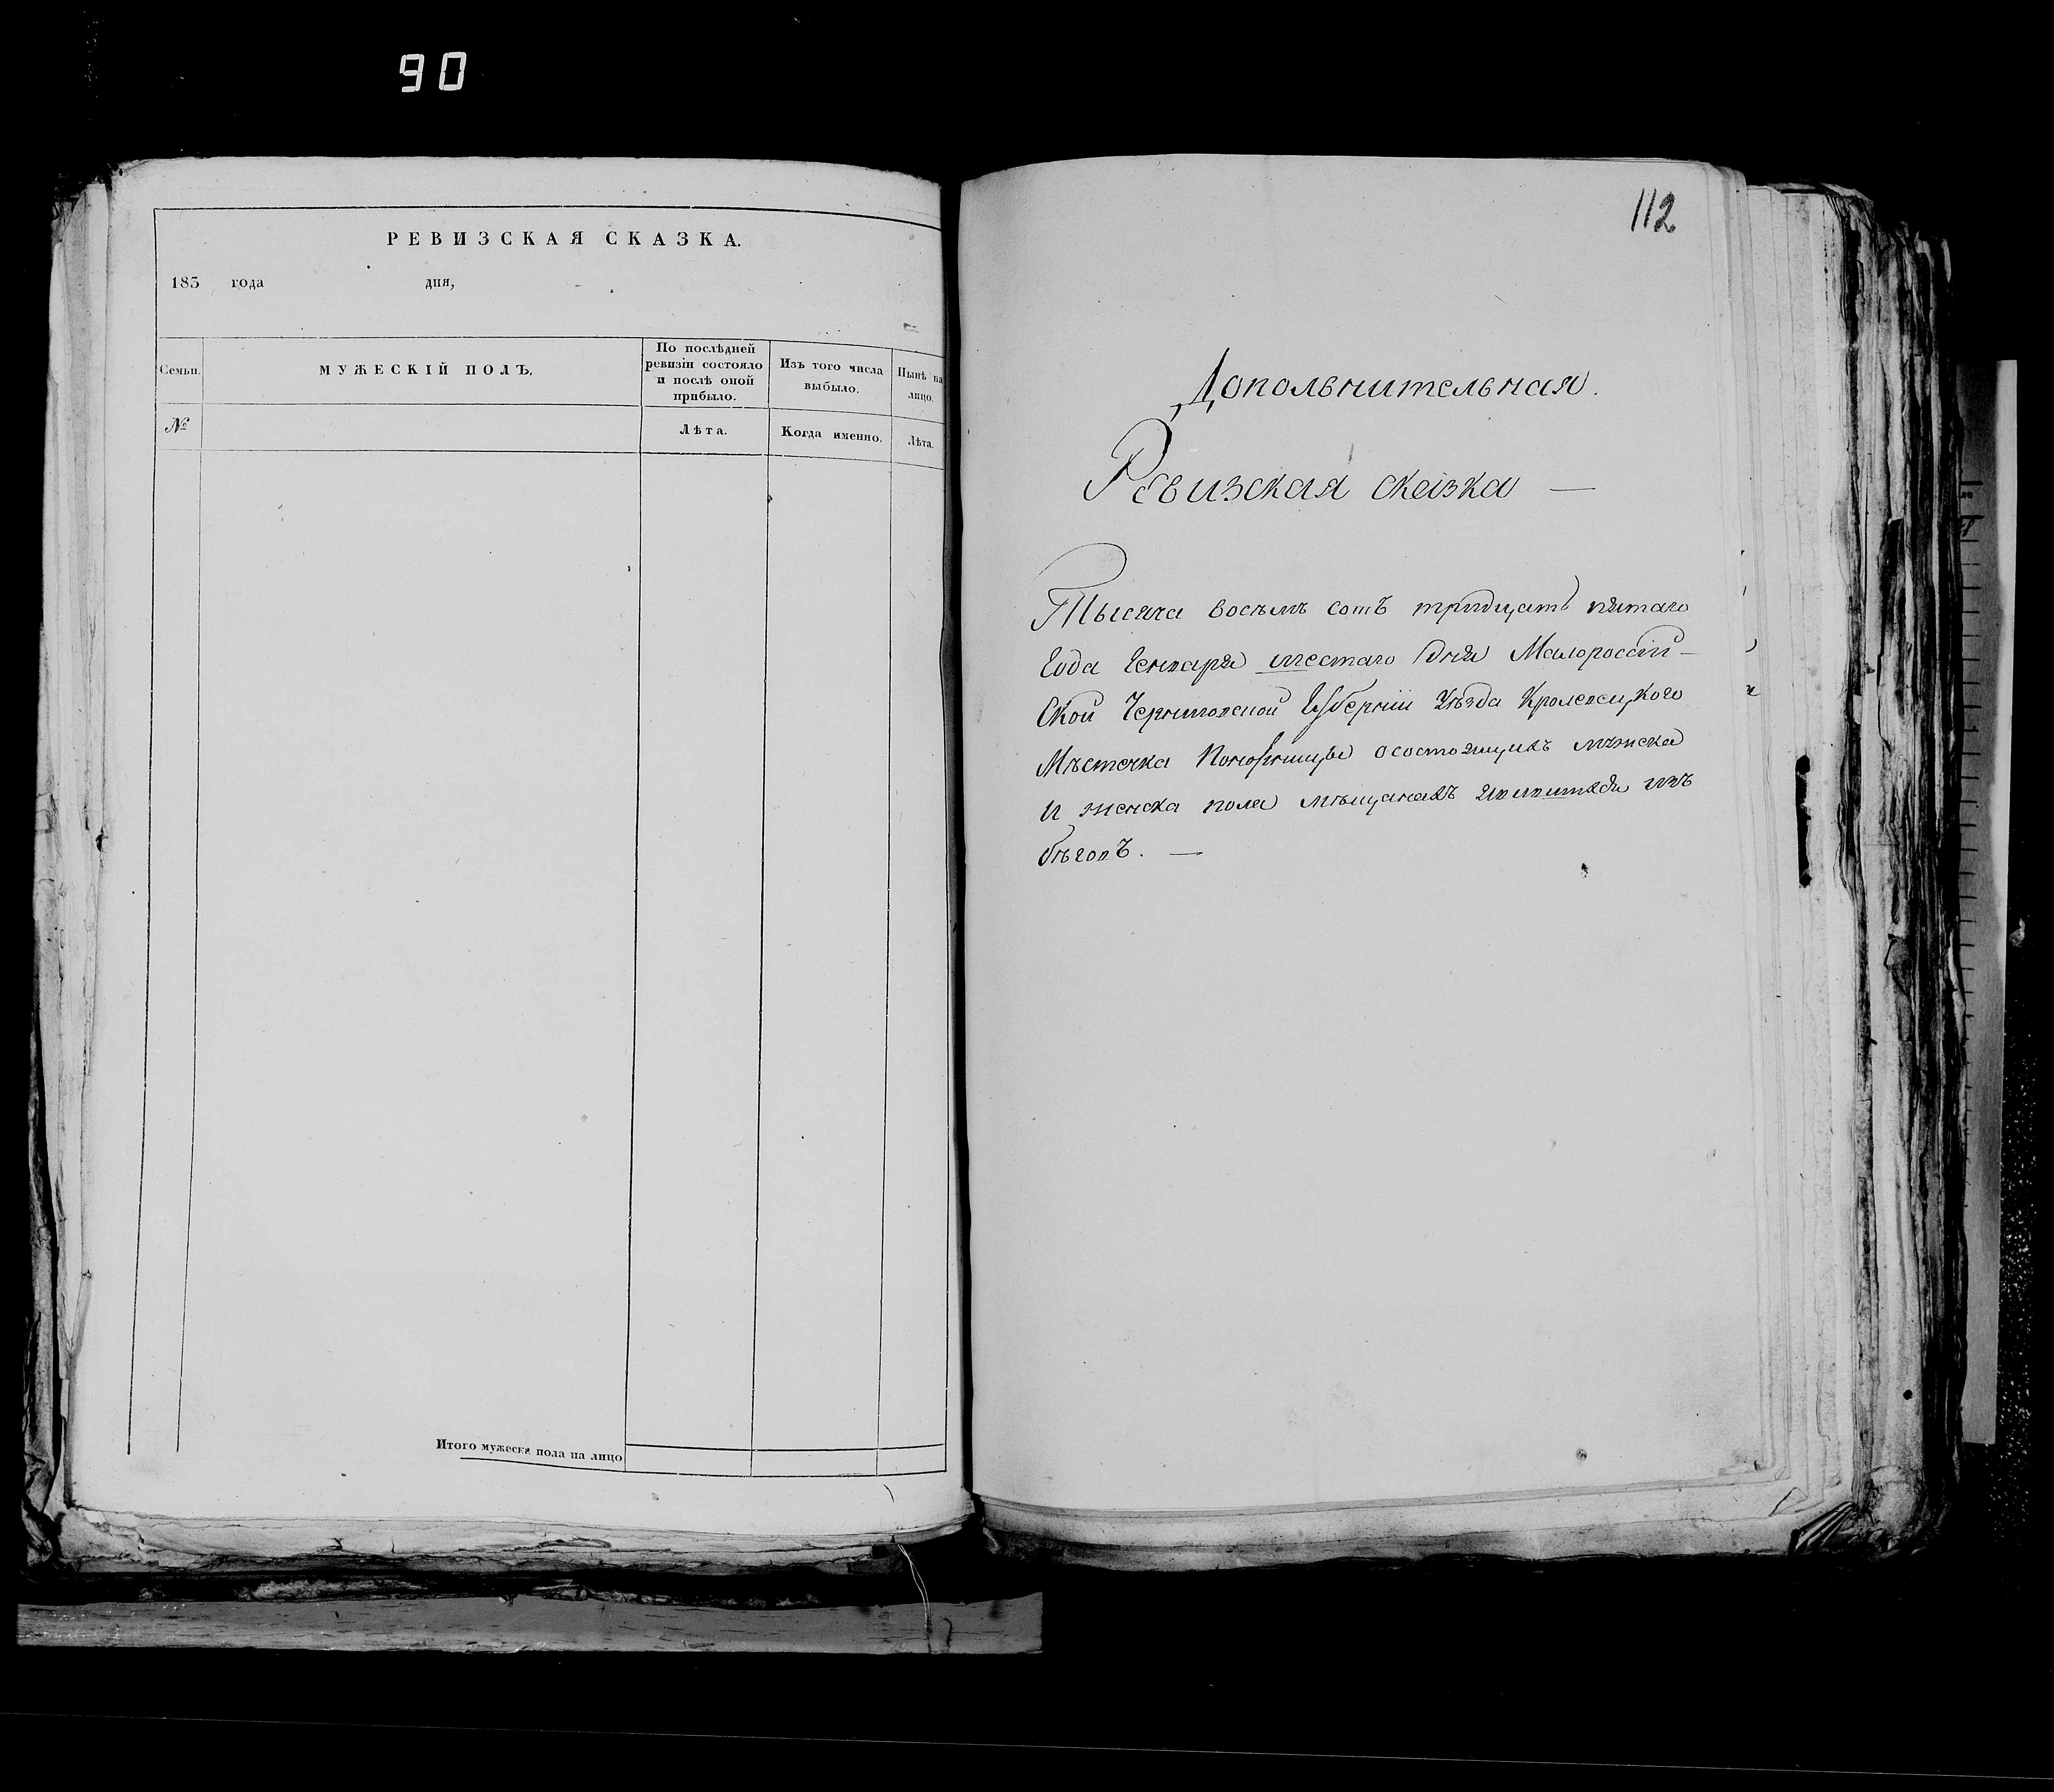 90
РЕВИЗСКАЯ СКАЗКА.
183 года дня,
Семьи.
МУЖЕСКІЙ ПОЛЪ.
По послѣдней
ревизіи состояло
и послѣ оной
прибыло.
Изъ того числа
выбыло.
Нынѣ на
лицо.
№
Лѣта.
Когда именно.
Лѣта.
Итого мужеска пола на лицо
112
Дополнительная.
Ревизская сказка —
Тысяча восемъ сотъ тридцать пятаго
Года Генваря шестаго дня Малороссій-
Ской Черниговской Губерніи Уѣзда Кролевецкого
Мѣстечка Понорницы о состоящихъ мужеска
и женска пола мѣщанахъ изъ
бѣговъ. —